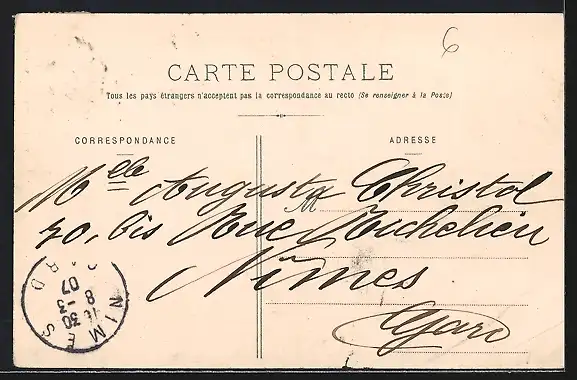 6
CARTE POSTALE
Tous les pays étrangers n'acceptent pas la correspondance au recto (Se renseigner à la Poste)
CORRESPONDANCE
ADRESSE
Mlle Augusta Christol
M
70, bis Rue Richelieu
Nîmes
Gard
NIMES
8 30
-3
07